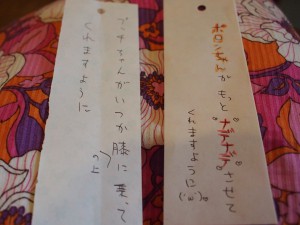 ボタンちゃんがもっと"ナデナデ"させて
くれますように
ちゃんがいつか膝の上に乗って
くれますように